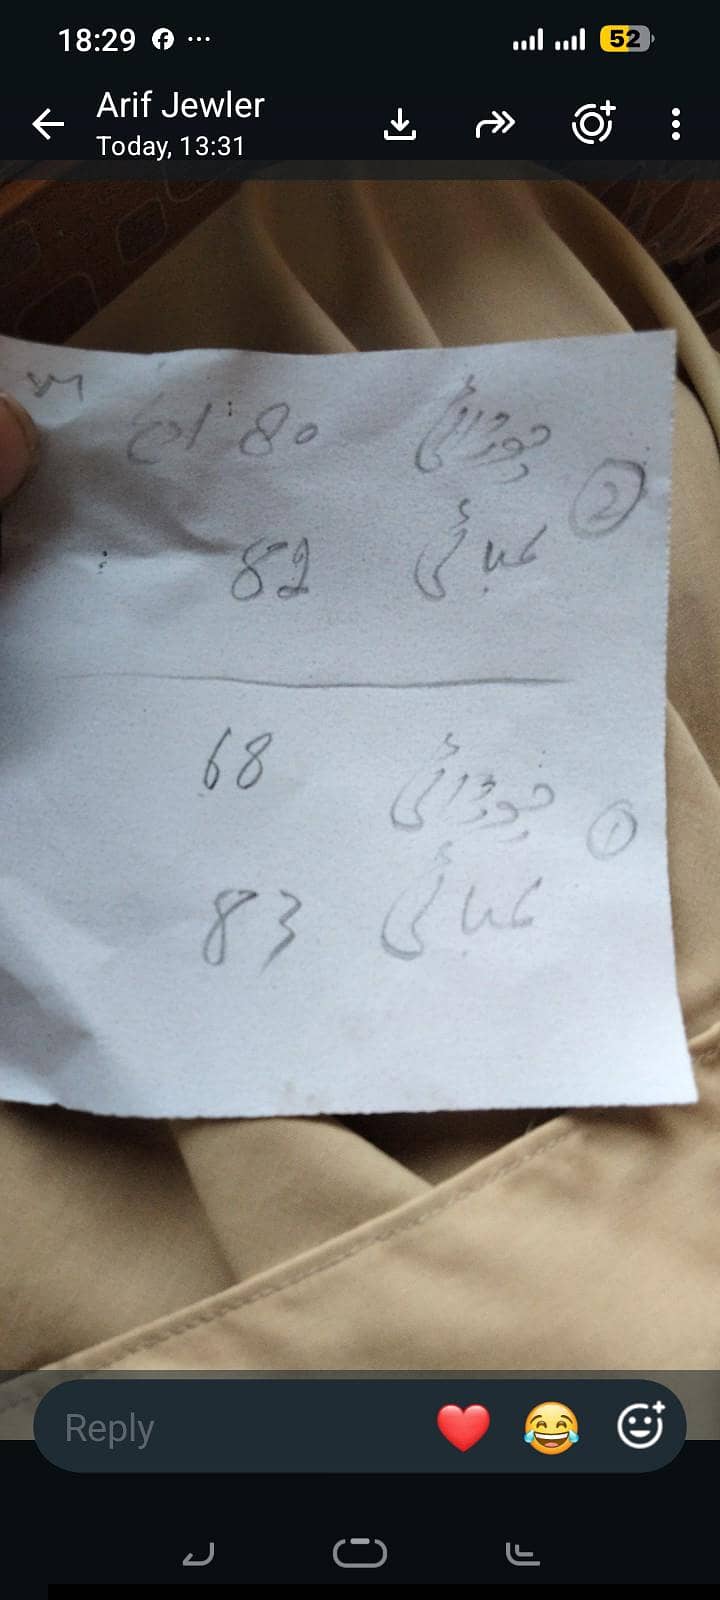 18:29
52
Arif Jewler
Today, 13:31
② چوڑائی 80 انچ
لمبائی 82
① چوڑائی 68
لمبائی 83
Reply